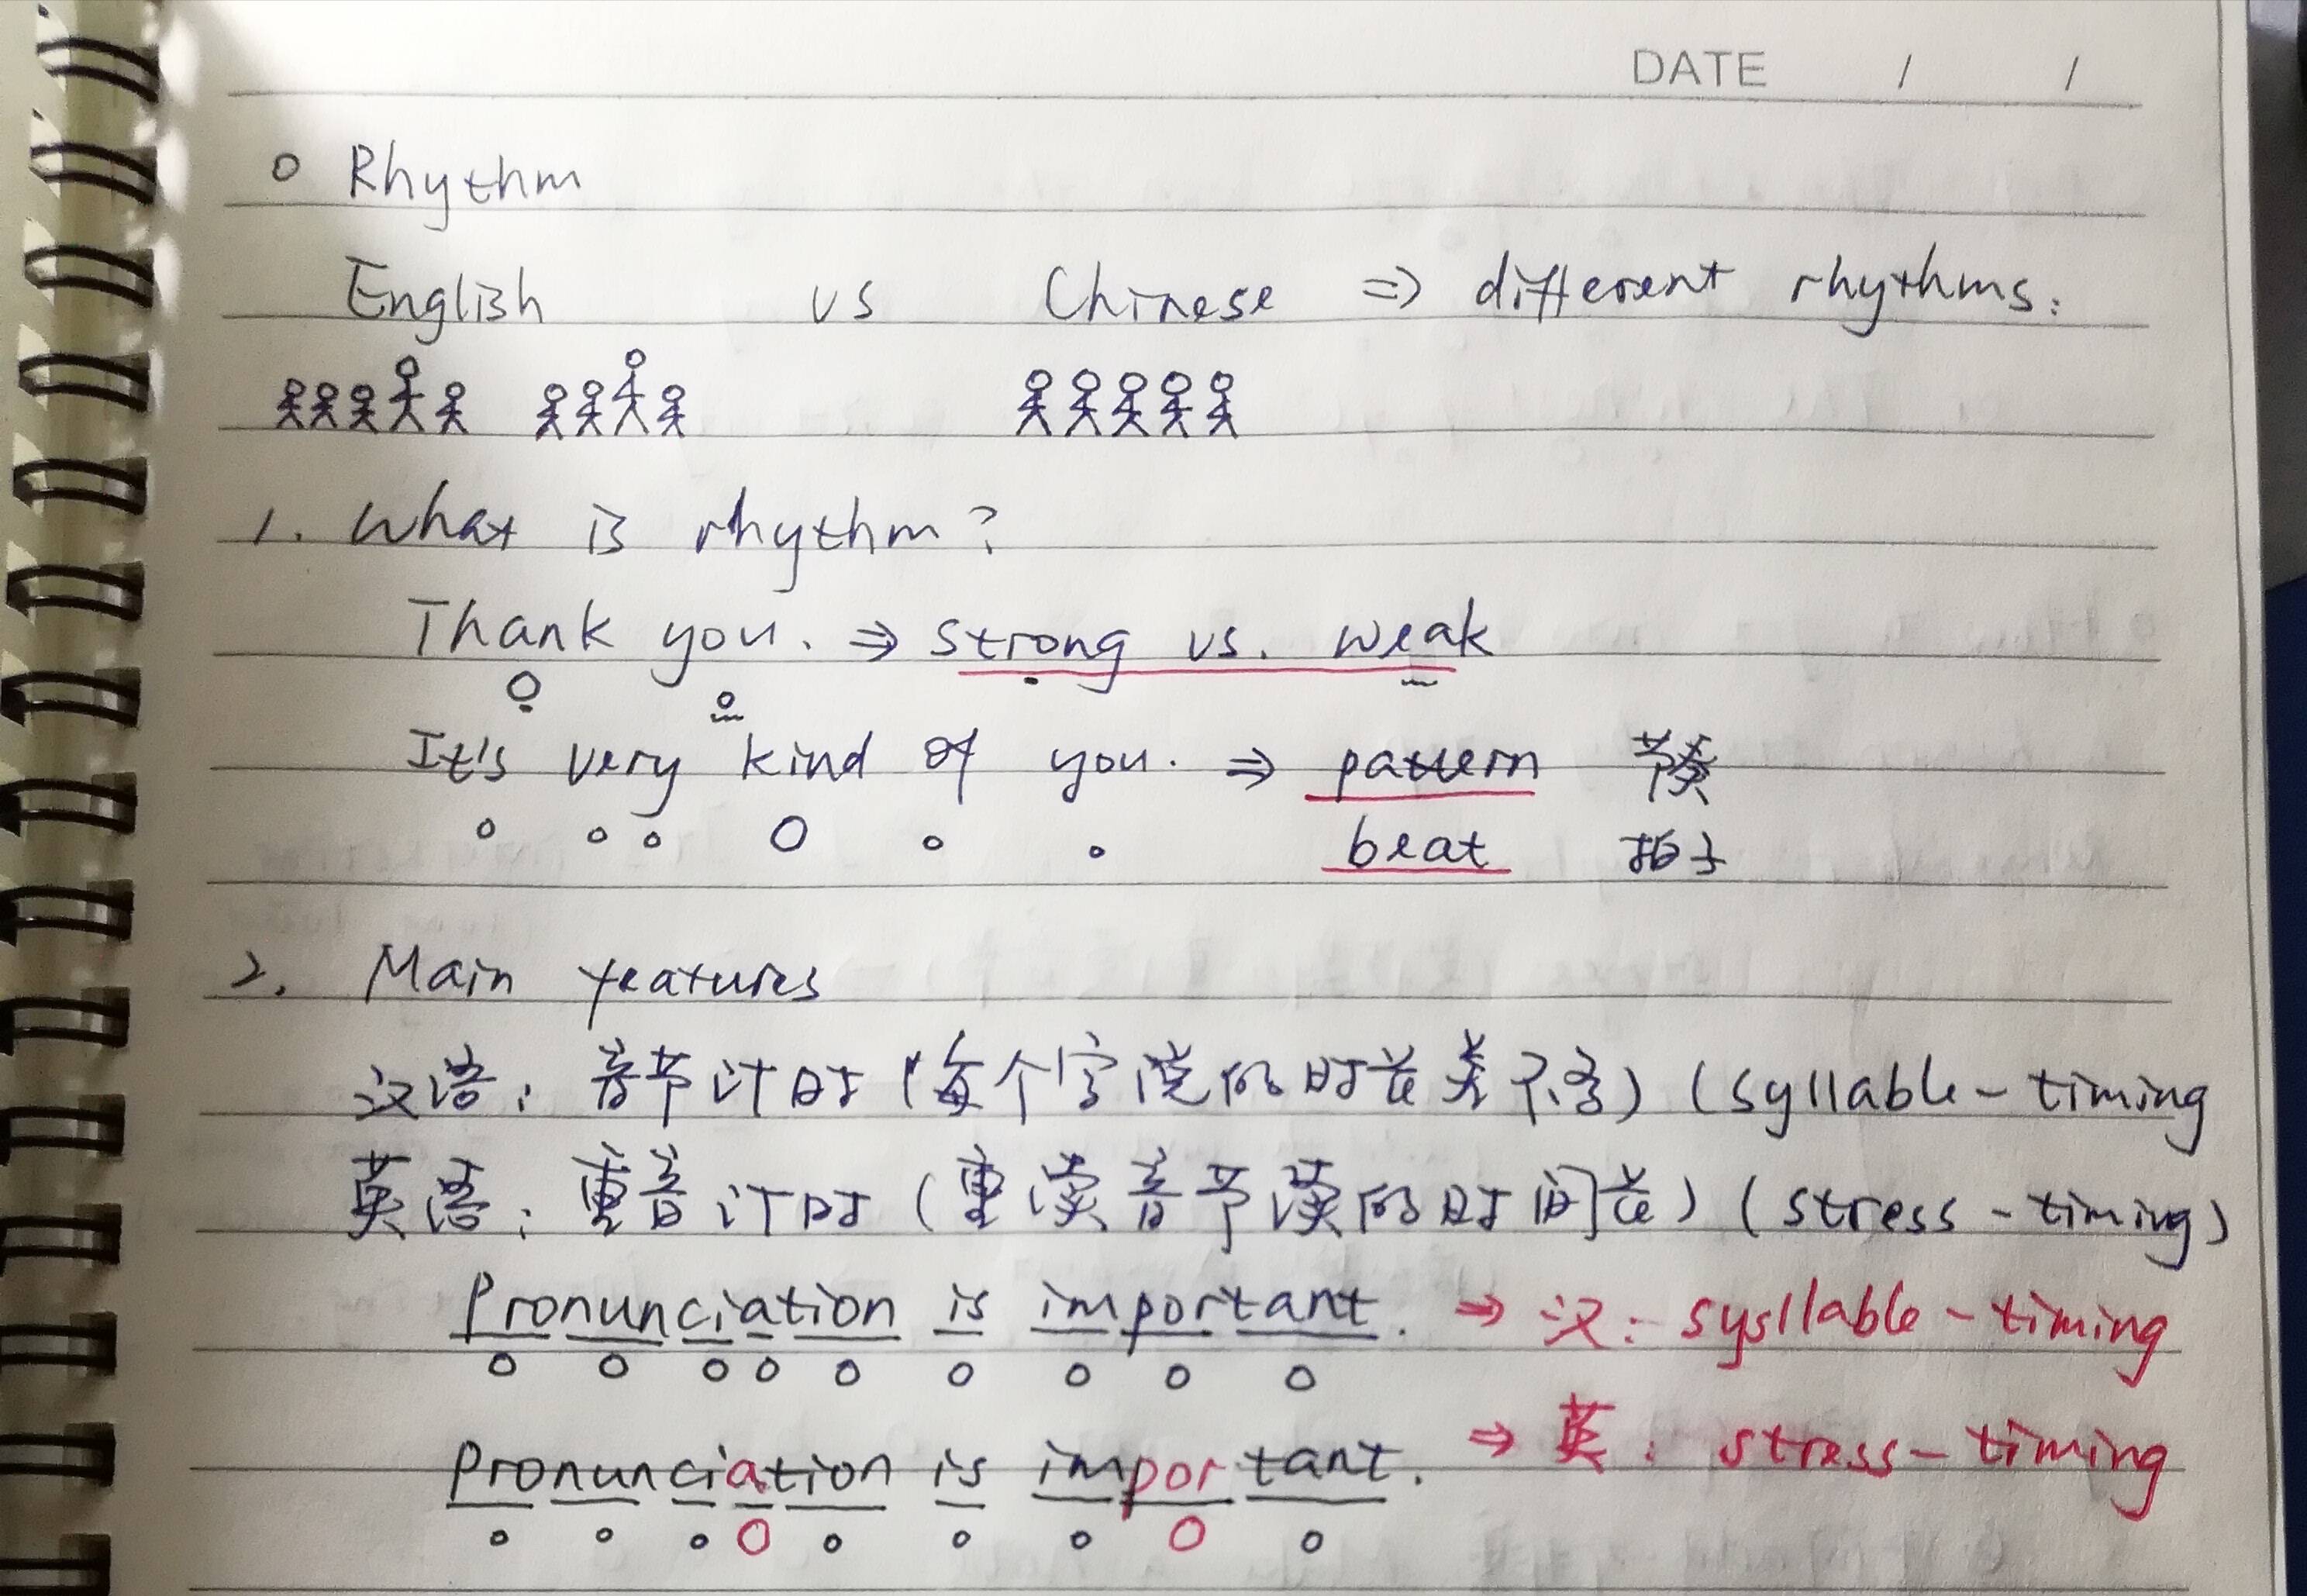 DATE / /
○ Rhythm
English vs Chinese ⇒ different rhythms.
1. What is rhythm?
Thank you. ⇒ strong vs. weak
It's very kind of you. ⇒ pattern 节奏
beat 拍子
2. Main features
汉语: 音节计时 (每个字说的时长差不多) (syllable-timing
英语: 重音计时 (重读音节读的时间长) (stress-timing)
Pronunciation is important. ⇒ 汉: sysllable-timing
Pronunciation is important. ⇒ 英: stress-timing